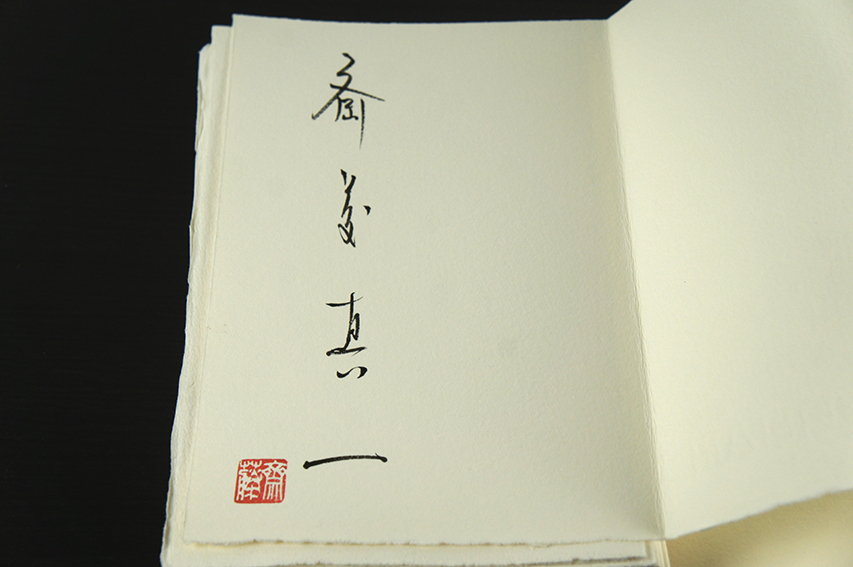 斎藤真一
齋藤